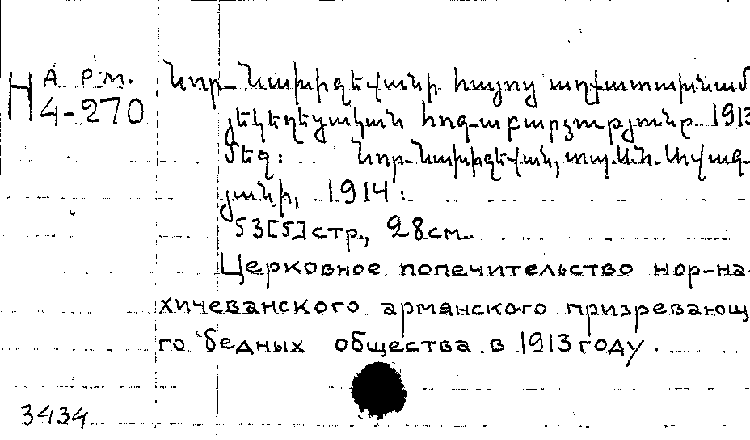 Арм. Նոր-Նախիջեվանի հայոց աղքատախնամ
Н 4-270 յեկեղեցական հոգաբարձությունը 1913
մեզ: Նոր-Նախիջեվան, տպ.
յանի, 1914:
53[5]стр., 28см.
Церковное попечительство нор-на-
хичеванского армянского призревающ
го бедных общества в 1913 году.
3434